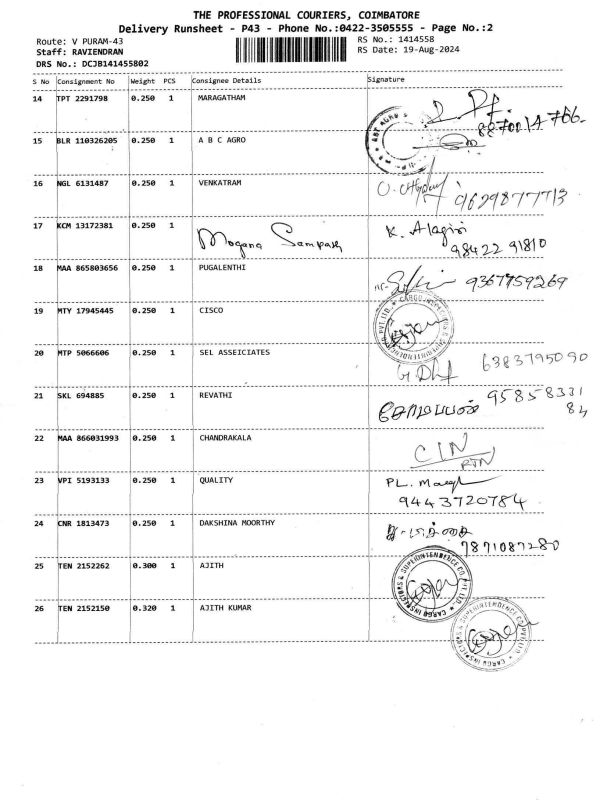 THE PROFESSIONAL COURIERS, COIMBATORE
Delivery Runsheet - P43 - Phone No.:0422-3505555 - Page No.:2
Route: V PURAM-43 RS No.: 1414558
Staff: RAVIENDRAN RS Date: 19-Aug-2024
DRS No.: DCJB141455802
S No Consignment No Weight PCS Consignee Details Signature
14 TPT 2291798 0.250 1 MARAGATHAM
15 BLR 110326205 0.250 1 A B C AGRO
16 NGL 6131487 0.250 1 VENKATRAM 9629877713
17 KCM 13172381 0.250 1 Mogana Sampath K. Alagiri
98422 91810
18 MAA 865803656 0.250 1 PUGALENTHI 9367759269
19 MTY 17945445 0.250 1 CISCO
CARGO INSPECTORS & SUPERINTENDENCE CO. PVT LTD.
20 MTP 5066606 0.250 1 SEL ASSEICIATES 6383795090
21 SKL 694885 0.250 1 REVATHI 95858331
84
22 MAA 866031993 0.250 1 CHANDRAKALA CIN
RTN
23 VPI 5193133 0.250 1 QUALITY PL.
9443720784
24 CNR 1813473 0.250 1 DAKSHINA MOORTHY
7871087280
25 TEN 2152262 0.300 1 AJITH
CARGO INSPECTORS & SUPERINTENDENCE CO. PVT LTD.
26 TEN 2152150 0.320 1 AJITH KUMAR
CARGO INSPECTORS & SUPERINTENDENCE CO. PVT LTD.